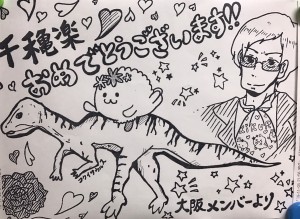 千穐楽
おめでとうございます!!
大阪メンバーより